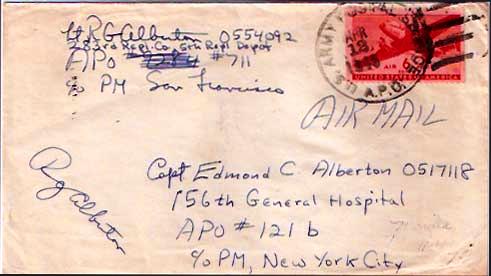 Lt RG Alberton 0554092
283rd Repl. Co. 5th Repl Depot
APO #711
c/o PM San Francisco
U.S. ARMY POSTAL SERVICE
APR
12
A.P.O.
AIR
UNITED STATES OF AMERICA
AIR MAIL
RG Alberton
Capt Edmond C. Alberton 0517118
156th General Hospital
APO #121 b
c/o PM, New York City